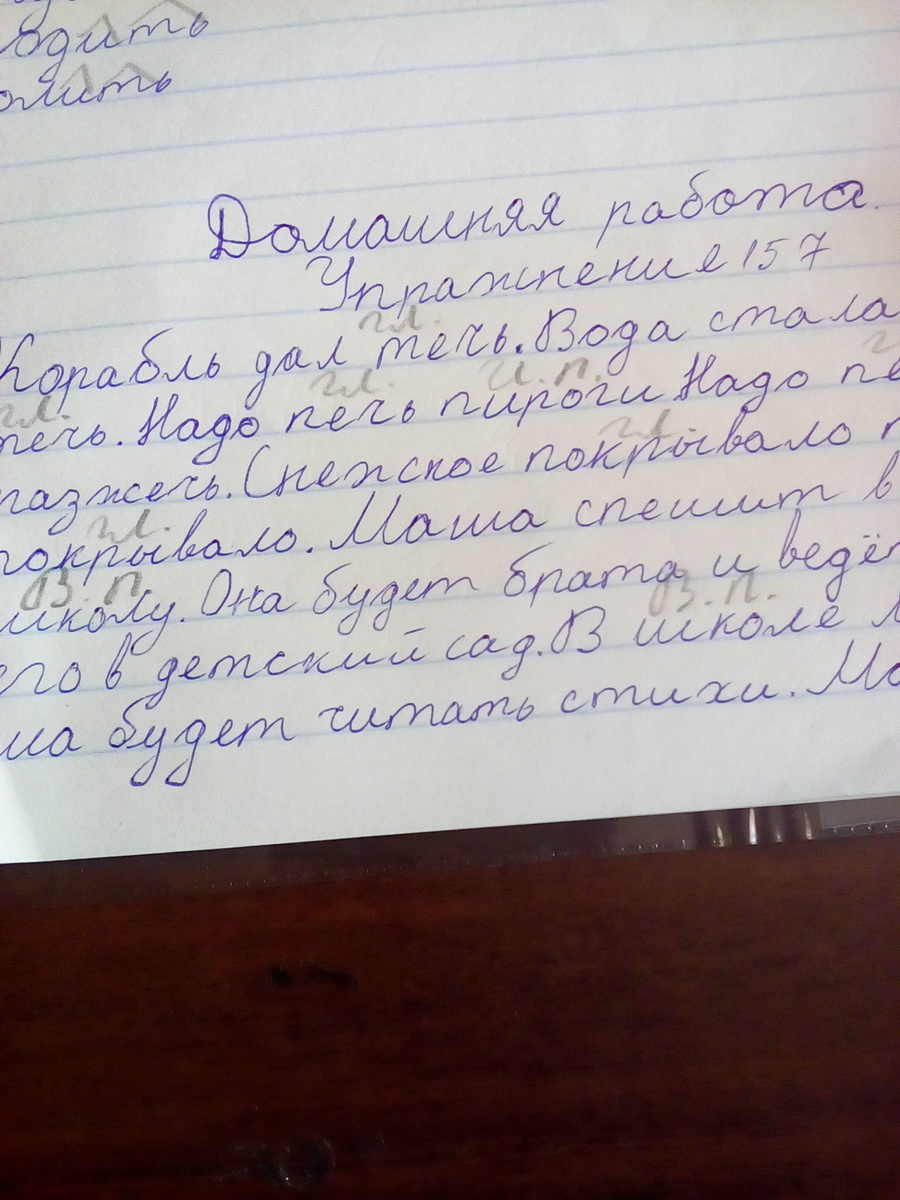 одить
олить
Домашняя работа.
Упражнение 157
гл.
Корабль дал течь. Вода стала
гл. гл. И.п.
течь. Надо печь пироги Надо пе
гл.
разжечь. Снежское покрывало п
гл.
покрывало. Маша спешит в
В. п. В. п.
школу. Она будет брата и ведёт
его в детский сад. В школе М
ша будет читать стихи. Ма